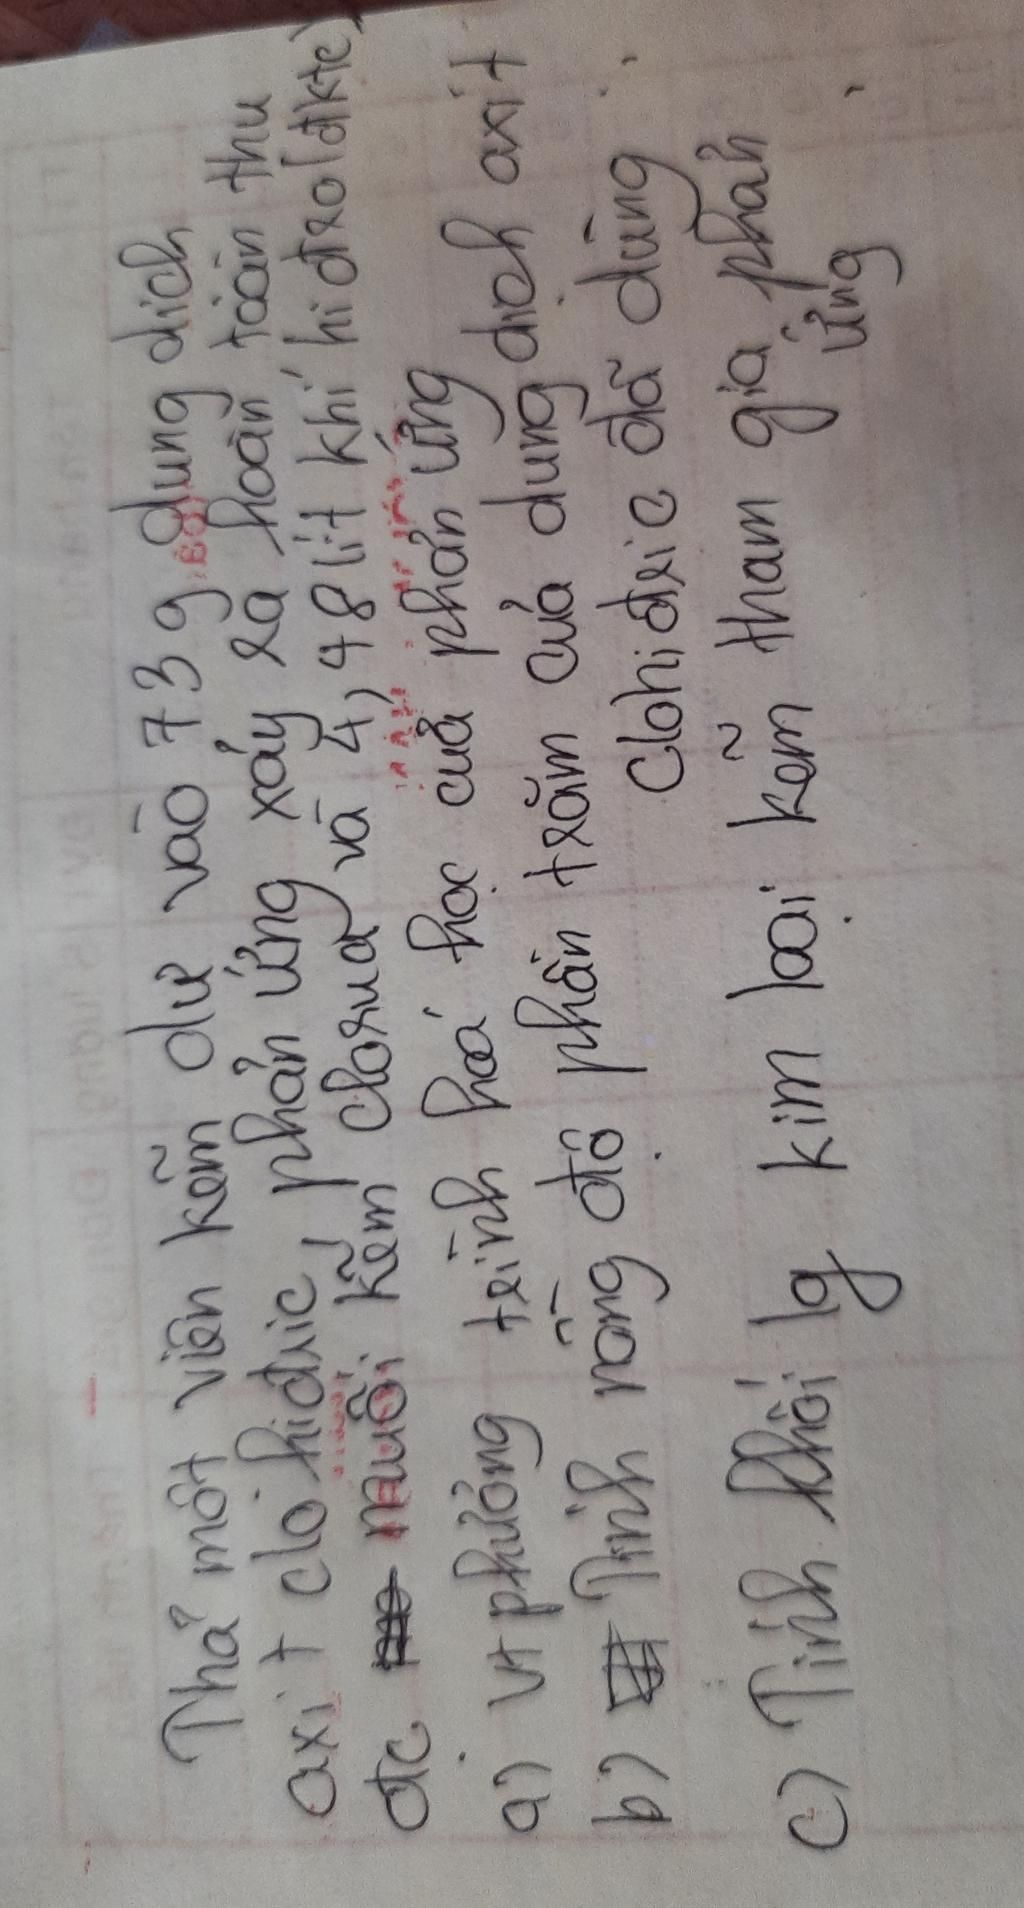 Thả một viên kẽm dư vào 73 g dung dich
axit clohiđric phản ứng xảy ra hoàn toàn thu
đc muối kẽm clorua và 4,48 lít khí hiđro(đktc)
a) vt phương trình hoá học của phản ứng
b) Tính nồng độ phần trăm của dung dịch axit
clohiđric đã dùng
c) Tính khối lg kim loại kẽm tham gia phản
ứng